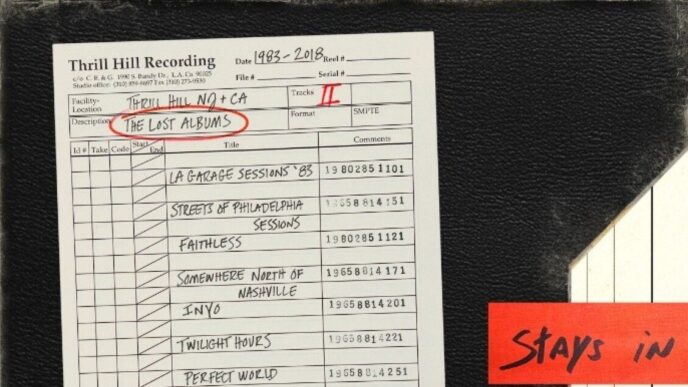 Thrill Hill Recording
Date 1983-2018 Reel #
Studio office:
File # Serial #
Facility-Location THRILL HILL NJ + CA
Tracks II
Description THE LOST ALBUMS
Format SMPTE
Id # Take Code Start End Title Comments
LA GARAGE SESSIONS '83 19802851101
STREETS OF PHILADELPHIA
SESSIONS
FAITHLESS 19802851121
SOMEWHERE NORTH OF 19658814171
NASHVILLE
INYO 19658814201
TWILIGHT HOURS 19658814221
PERFECT WORLD 19658814251
STAYS IN